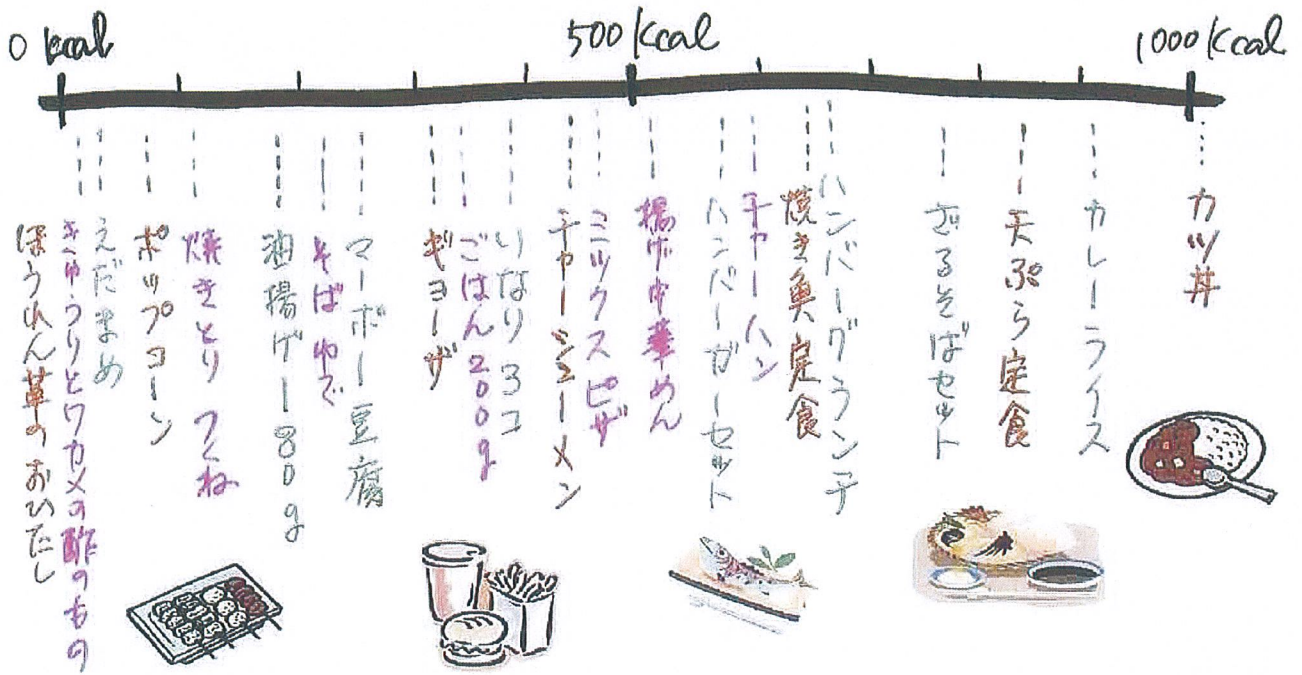 0 kcal
500 kcal
1000 kcal
ほうれん草のおひたし
きゅうりとワカメの酢のもの
えだまめ
ポップコーン
焼きとり つくね
油揚げー80g
そば ゆで
マーボー豆腐
ギョーザ
ごはん200g
いなり3コ
チャーシューメン
ミックスピザ
揚げ中華めん
ハンバーガーセット
チャーハン
焼き魚定食
ハンバーグランチ
ざるそばセット
天ぷら定食
カレーライス
カツ丼